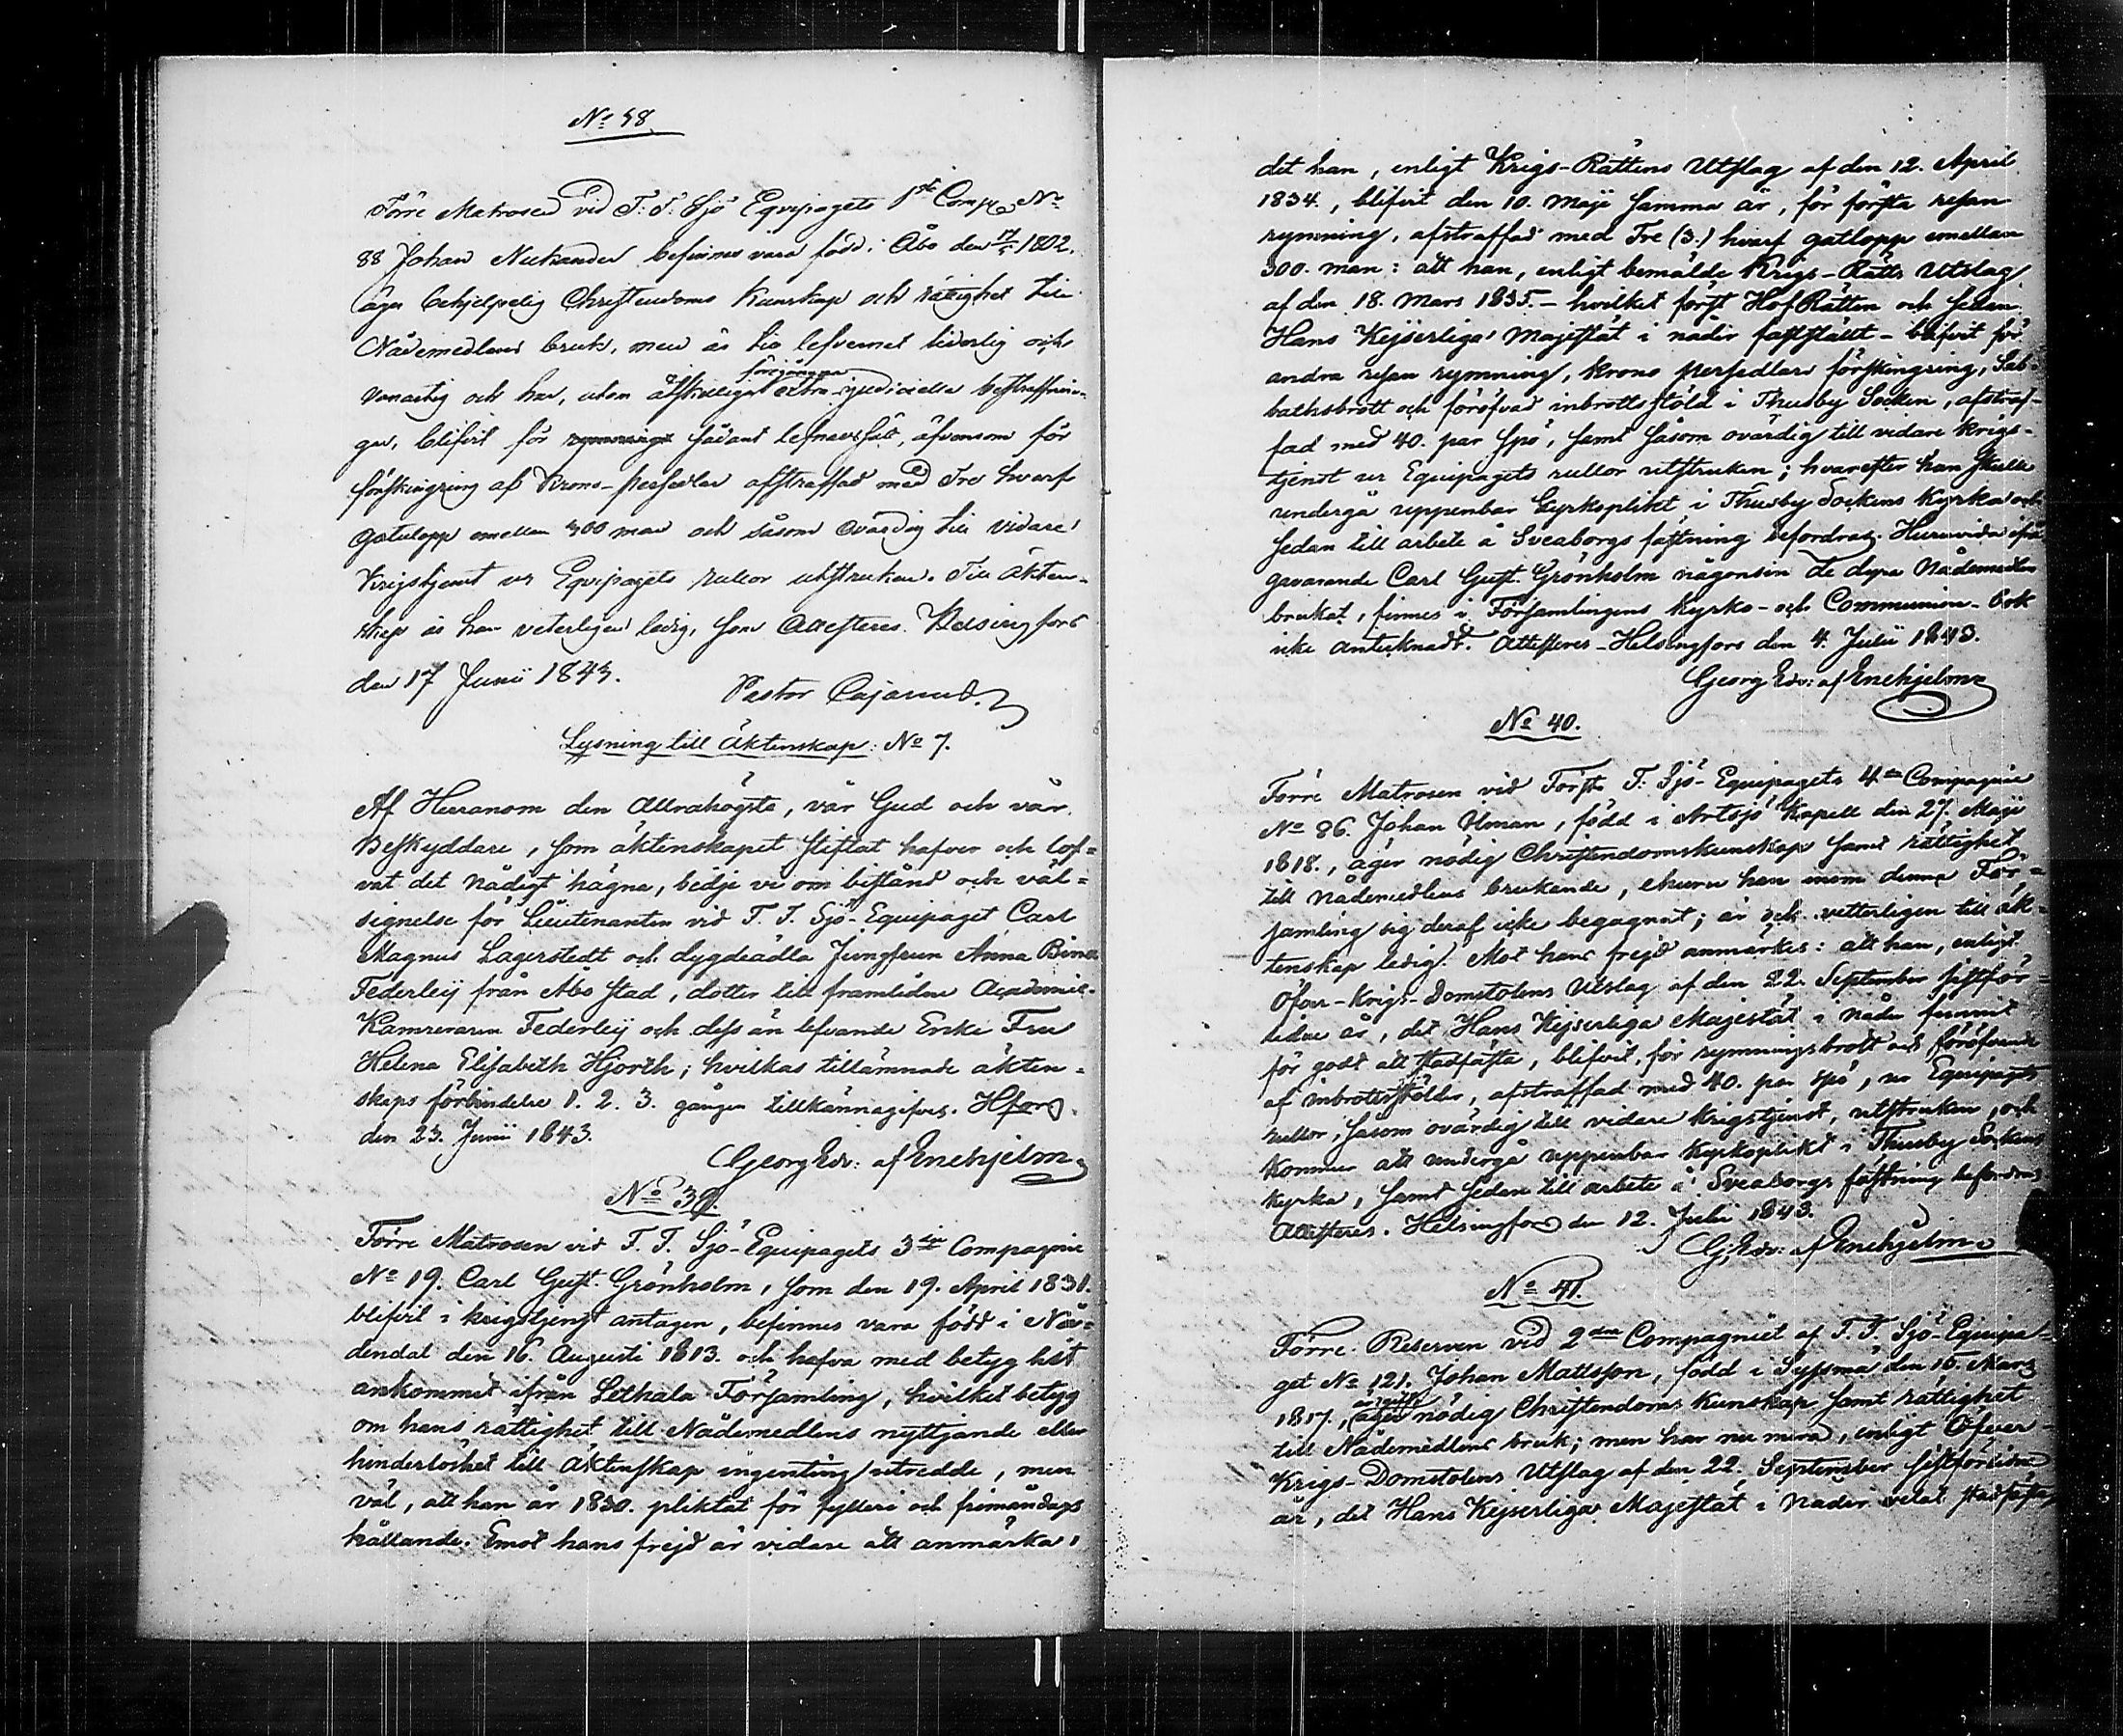 No 38
Förre Matrosen vid F: F: Sjö Equipagets 1ste Comp. No
88 Johan Neckander befinnes vara född i Åbo den 1802.
äger behjelpelig Christendoms Kunskap och rätighet till
Nådemedlens bruk, men är till lefvernet liderlig och
vanartig och har, utom åtskilliga föregångna extra-judiciella bestraffnin-
gar, blifvit för sådant lefnadssätt, äfvensom för
förskingring af Krono-Persedlar afstraffad med Tre hvarf
gatulopp emellan 300 man och såsom ovärdig till vidare
Krigstjenst ur Equipagets rullor utstruken. Till Äkten-
skap är han veterligen ledig, som Attesteras. Helsingfors
den 17 Junii 1843.
Pastor Cajanus.
Lysning till Äktenskap: No 7.
Af Herranom den Allrahögsta, vår Gud och vår
Beskyddare, som äktenskapet stiftat hafver och lof=
vat det nådigt hägna, bedje vi om bistånd och väl=
signelse för Lieutenanten vid F. F. Sjö-Equipaget Carl
Magnus Lagerstedt och dygdeädla Jungfrun Anna
Federleÿ från Åbo stad, dotter till framlidne Academie-
Kamreraren Federleÿ och dess än lefvande Enke Fru
Helena Elisabeth Hjorth; hvilkas tillämnade äkten=
skaps förbindelse 1. 2. 3. gången tillkännagifves. Hfors
den 23. Junii 1843.
Georg Edv: af Enehjelm
No 39.
Förre Matrosen vid F. F. Sjö-Equipagets 3dje Compagnie
No 19. Carl Gust. Grönholm, som den 19. April 1831.
blifvit i krigstjenst antagen, befinnes vara född i Nå=
dendal den 16. Augusti 1813. och hafva med betyg hit
ankommit ifrån Lethala Församling, hvilket betyg
om hans rättighet till Nådemedlens nyttjande eller
hinderlöshet till Äktenskap ingenting utredde, men
väl, att han år 1830. pliktat för fylleri och frimåndags
hållande. Emot hans frejd är vidare att anmärka,
det han, enligt Krigs-Rättens Utslag af den 12. April
1834., blifvit den 10. Maji samma år, för första resan
rymning, afstraffad med Tre (3.) hvarf gatlopp emellan
300. man: att han, enligt bemälde Krigs-Rätts Utslag
af den 18. Mars 1835. - hvilket först HofRätten och sedan
Hans Kejserliga Majestät i nåder fastställt - blifvit för
andra resan rymning, Krono persedlars förskingring, Sab-
bathsbrott och föröfvad inbrottsstöld i Thusby Socken, afstraf-
fad med 40. par spö, samt såsom ovärdig till vidare krigs-
tjenst ur Equipagets rullor utstruken; hvarefter han skulle
undergå uppenbar Kyrkoplikt i Thusby Sockens Kyrka och
sedan till arbete å Sveaborgs fästning befordras. Huruvida
Carl Gust. Grönholm någonsin de dyra Nådemedlen
brukat, finnes i Församlingens Kyrko- och Communion-Bok
icke antecknadt. Attesteres - Helsingfors den 4. Julii 1843.
Georg Edv: af Enehjelm
No 40.
Förre Matrosen vid Första F. Sjö-Equipagets 4de Compagnie
No 86. Johan Ulman, född i Artsjö Kapell den 27. Maji
1818., äger nödig Christendomskunskap samt rättighet
till nådemedlens brukande, ehuru han inom denna För=
samling sig deraf icke begagnat; är och vetterligen till äk-
tenskap ledig. Mot hans frejd anmärkes: att han, enligt
Öfver-Krigs-Domstolens Utslag af den 22. September sistför=
lidne år, det Hans Kejserliga Majestät i nåder funnit
för godt att stadfästa, blifvit för rymningsbrott och föröfvande
af inbrottsstölder, afstraffad med 40. par spö, ur Equipagets
rullor, såsom ovärdig till vidare krigstjenst, utstruken, och
kommer att undergå uppenbar Kyrkoplikt i Thusby Sockens
kyrka, samt sedan till arbete å Sveaborgs fästning befordras
Attesteres. Helsingfors den 12. Julii 1843.
G. Edv: af Enehjelm
No 41.
Förre Reserven vid 2dra Compagniet af F. F. Sjö-Equipa=
get No 121. Johan Mattsson, född i Syssmä den 15. Mars
1817., är ogift äger nödig Christendoms Kunskap samt rättighet
till Nådemedlens bruk; men har nu mera, enligt Öfver-
Krigs-Domstolens Utslag af den 22. September sistförlidne
år, det Hans Kejserliga Majestät i Nåder velat stadfästa,